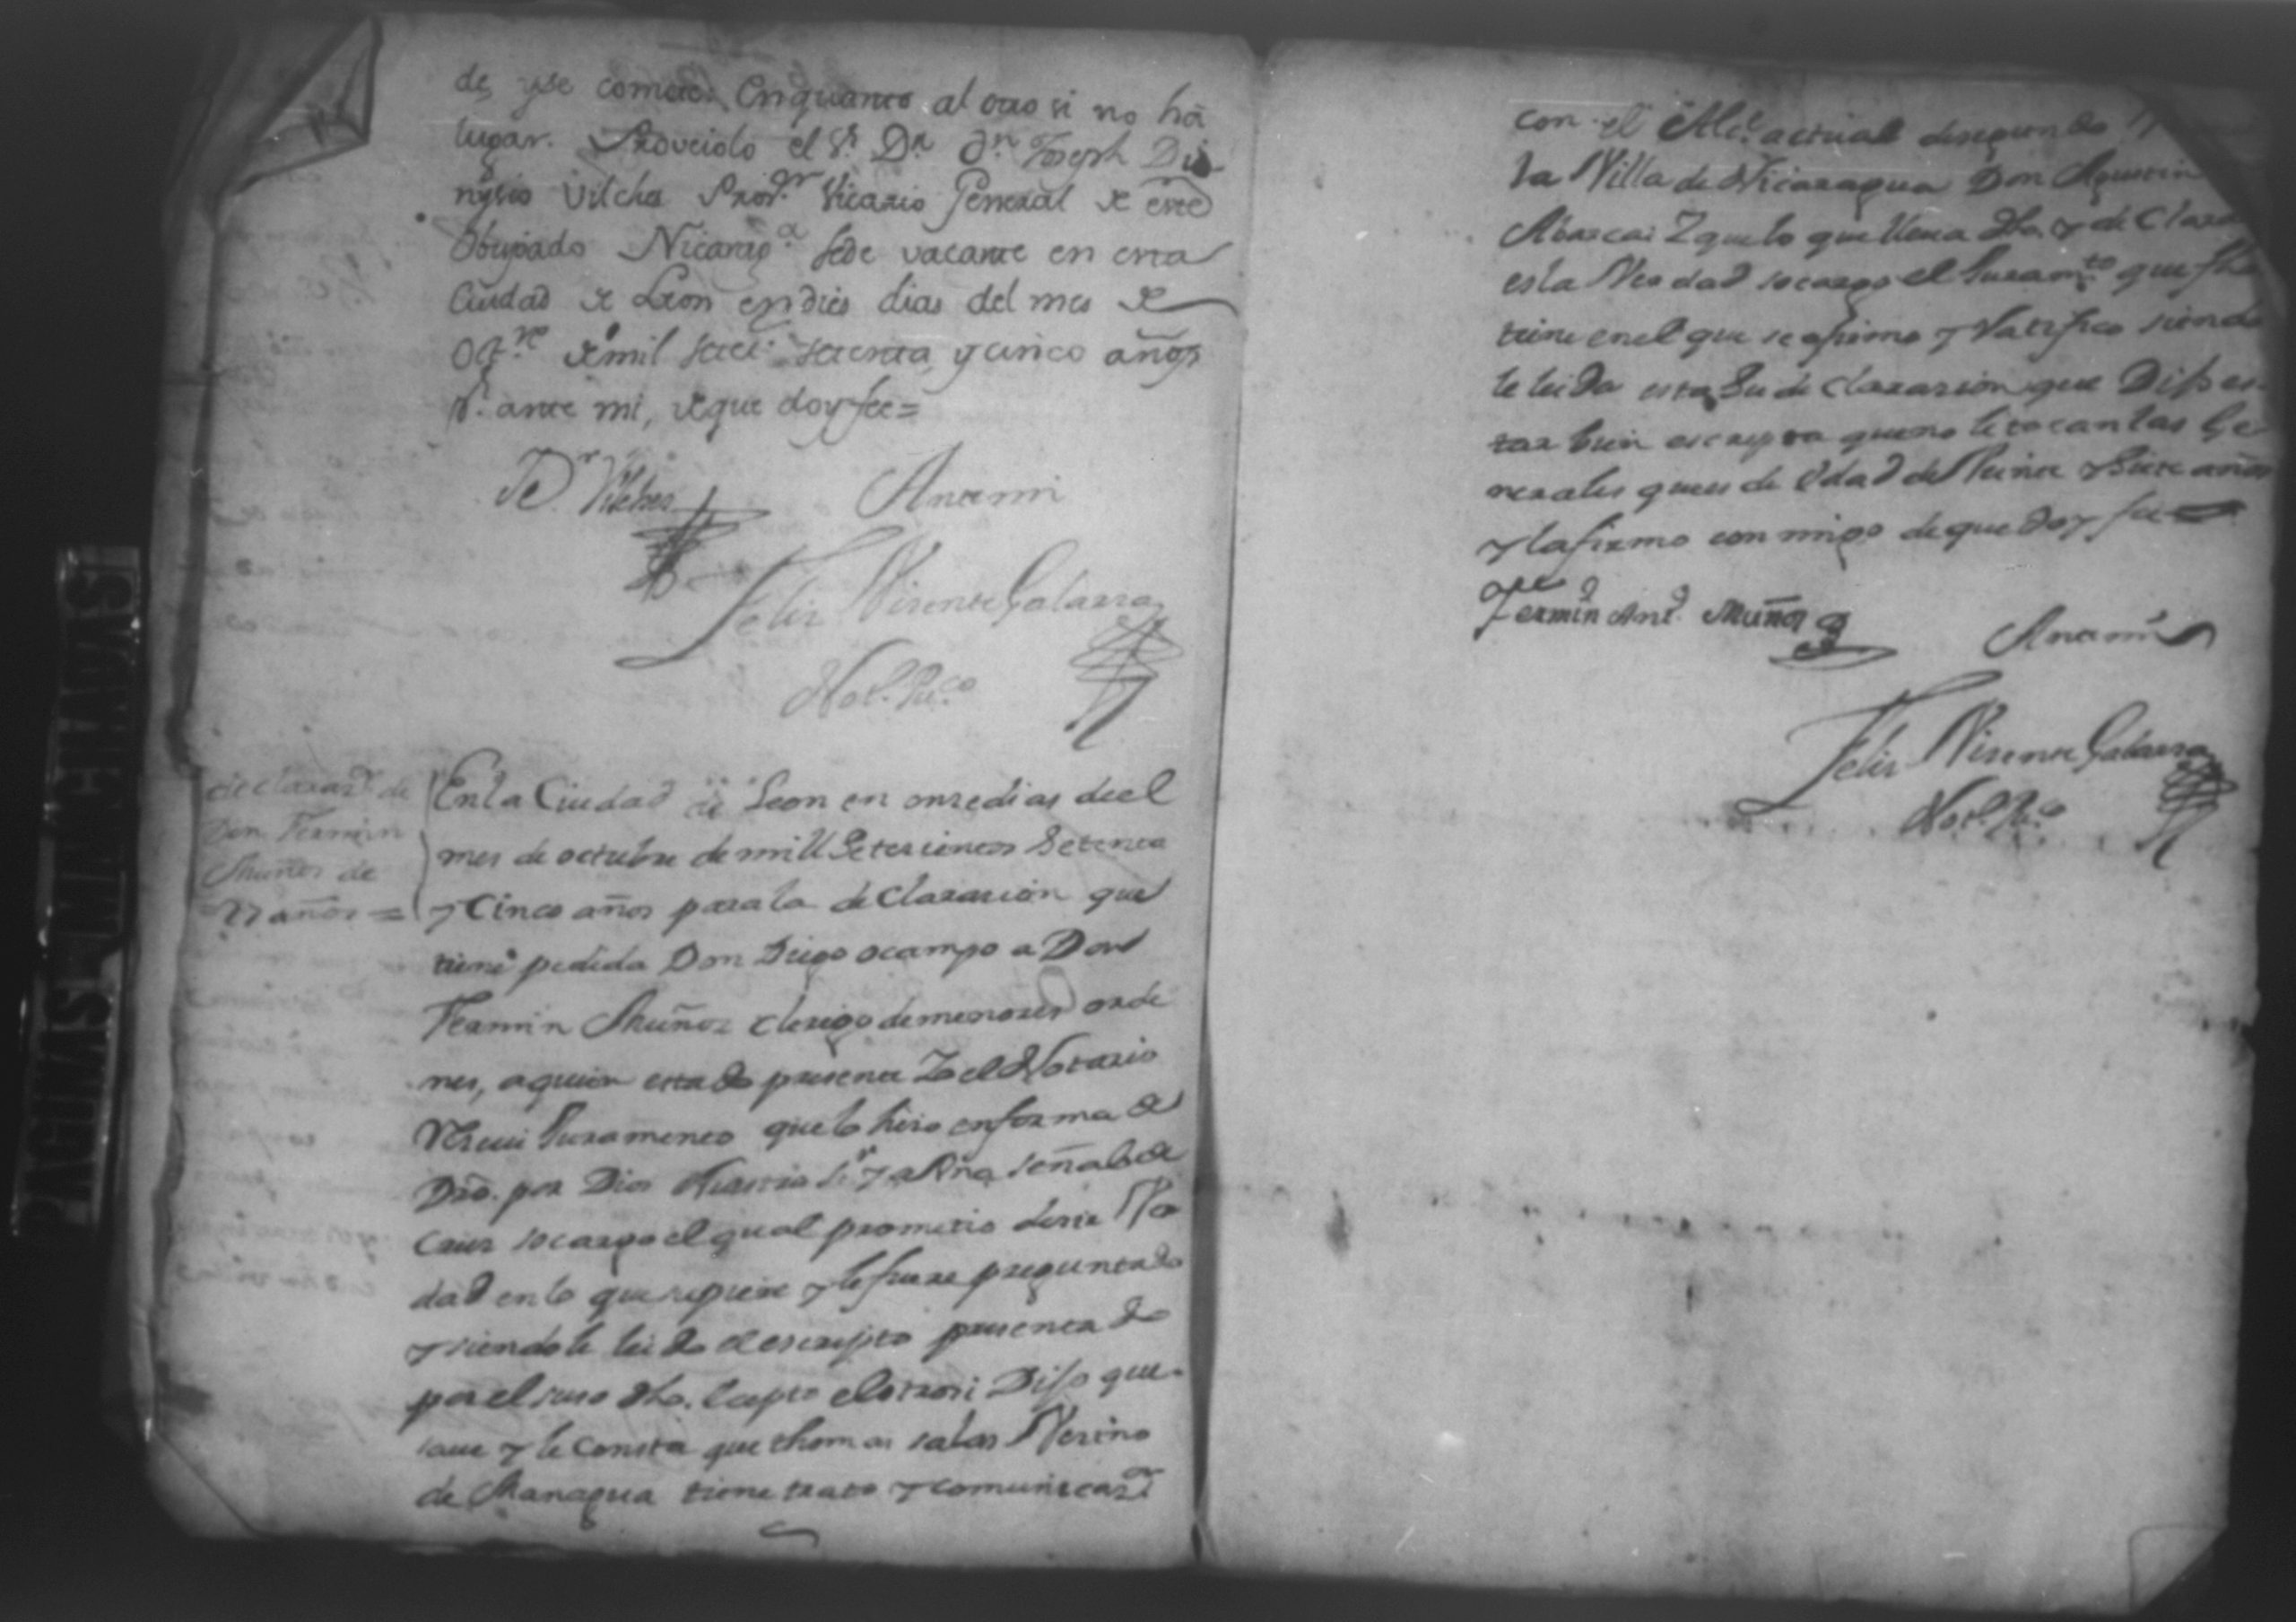 de, y se comete. Enquanto al otro si no há
lugar. Proveiolo el Sr. Dn. Dn. Joseph Dio
nysio Vilcha Prov.or Vicario General de este
Obispado Nicarag.a sede vacante en esta
Ciudad de Leon en dies dias del mes de
Oct.re de mil setet.s setenta, y cinco años
P.r ante mi, de que doy fee=
D.r Vilches
Antemi
Felix Visente Galarza
Not. Pu.co
declaraz.n de
Don Fermin
Muños de
27 años =
En la Ciudad de Leon en onse dias de el
mes de octubre de mill Setesientos Setenta
y Cinco años para la de Clarasion que
tiene pedida Don Diego ocampo a Don
Fermin Muñoz clerigo de menores orde
nes, a quien estado presente Yo el Notario
Resevi Juramento que lo hiso en forma de
Dro. por Dios Nuestro S.r y a Una señal de
Cruz so cargo el qual prometio desir Ver
dad en lo que supiere y le fuere preguntado
y siendole leido el escripto presentado
por el suso dho. Esepto el otrosi Dijo que
save y le Consta que thomas salas Vesino
de Managua tiene trato y comunicaz.n
con el Alc.e actual de segundo
la Villa de Nicaragua Don Agustin
Abarca: Y que lo que lleva dho. y de Clara
es la Verdad so cargo el Juram.to que fho
tiene en el que se afirmo y Ratifico siendo
le leida esta Su de Clarasion que Dijo es
tar bien escripta que no le tocan las Ge
nerales que es de Edad de Veinte y Siete años
y la firmo con migo de que doy fee
Fermin Ant.o Muños
Antemi
Felix Visente Galarza
Not. Pu.co
PAGINAS